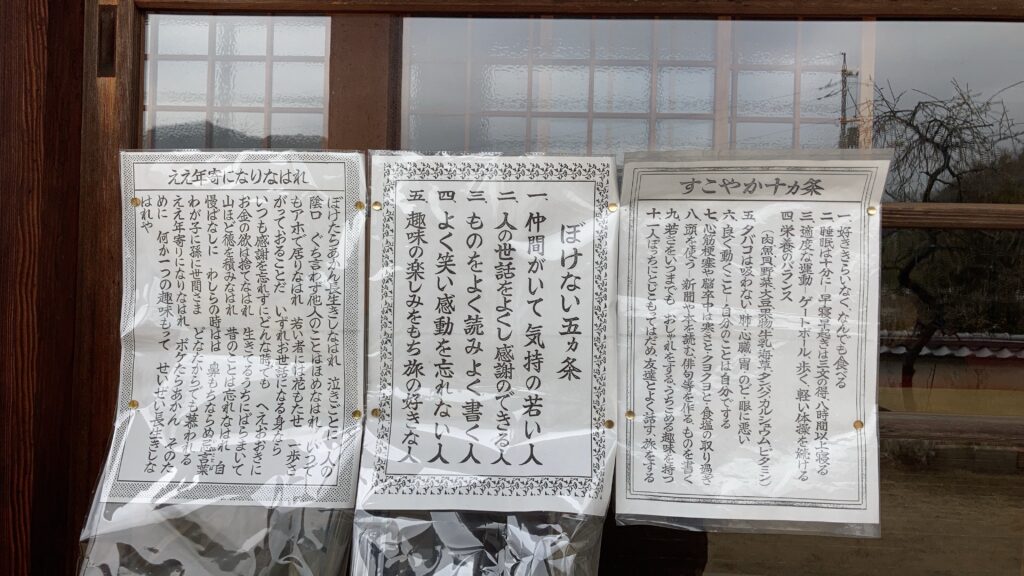 すこやか十ヵ条
一 好ききらいなく、なんでも食べる
二 睡眠は十分に 早寝早起きは三文の得、八時間以上寝る
三 適度な運動 ゲートボール、歩く、軽い体操を続ける
四 栄養のバランス
（肉魚貝野菜大豆果物牛乳海草タンパクカルシュウムビタミン
五 タバコは吸わない、肺、心臓、胃、のど、眼に悪い
六 良く動くこと―自分のことは自分でする
七 心筋梗塞や脳卒中は寒さと と食塩の取り過ぎ
八 頭を使う 新聞や本を読む俳句等を作る、ものを書く
九 若さをいつまでも、おしゃれをする うちこめる趣味を持つ
十 一人ぼっちにとじこもってはだめ、友達とよく話す、旅をする
ぼけない五ヵ条
一 仲間がいて気持の若い人
二 人の世話をよくし感謝のできる人
三 ものをよく読みよく書く人
四 よく笑い感動を忘れない人
五 趣味の楽しみをもち旅の好きな人
ええ年寄になりなはれ
ぼけたらあかん長生きしなはれ 泣きごとに 人の
陰口 ぐち言わず他人のことはほめなはれ いつで
もアホで居りなはれ 若い者には花もたせ 一歩さ
がっておることだ いずれお世話になる身なら
いつも感謝を忘れずに どんな時でも へえおおきに
お金の欲は捨てなはれ 生きとるうちにばらまいて
山ほど徳を積みなはれ 昔のことは忘れなはれ 自
慢ばなしに わしらの時は 鼻もちならぬ 言葉
わが子に孫に世間さま どなたからでも慕われる
ええ年寄りになりなはれ ボケたらあかん そのた
めに 何か一つの趣味もって せいせい長生きしな
はれや